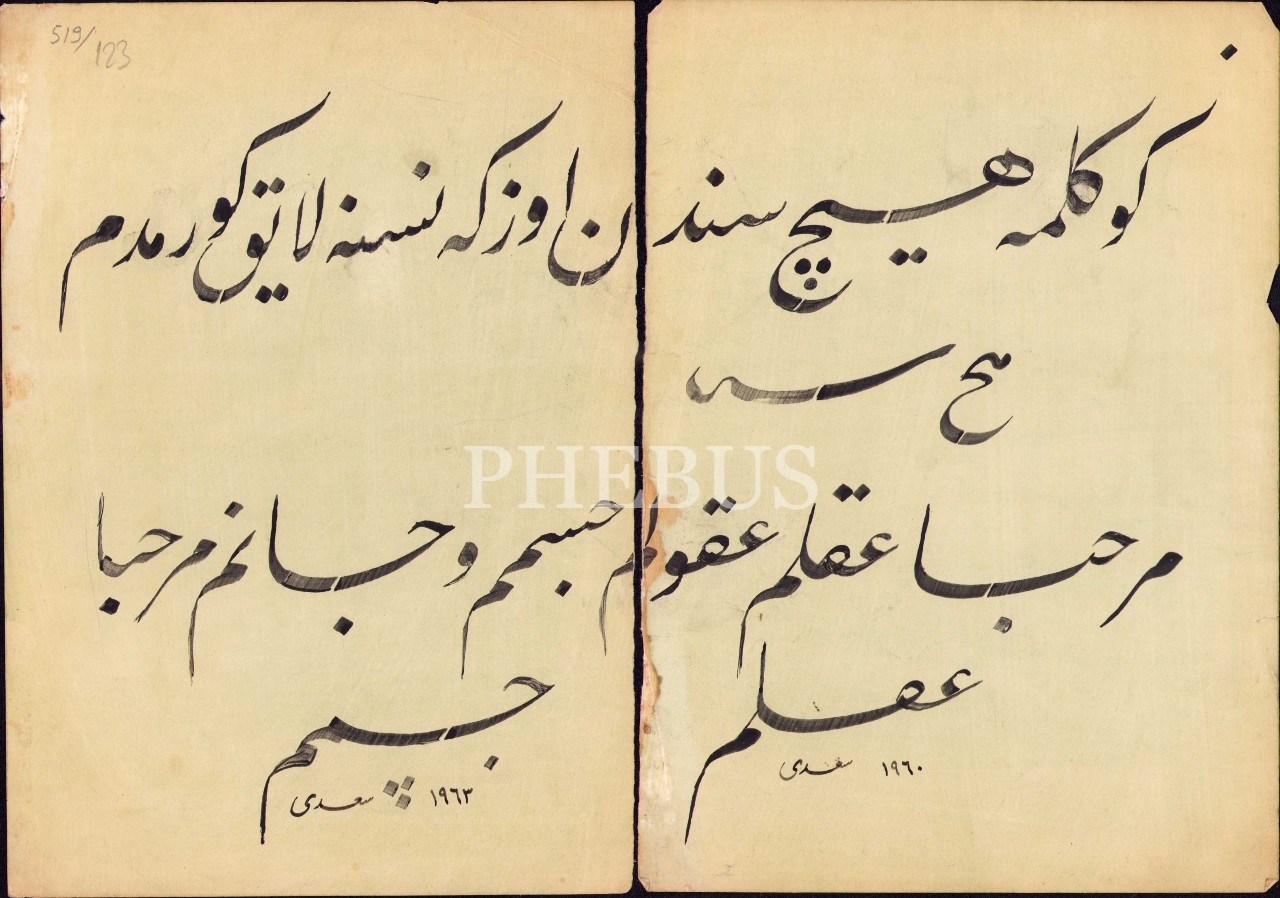 519/123
کوکلمه هیچ سندن اوزکه نسنه لایق کورمدم
PHEBUS
مرحبا عقلم عقولم جسمم و جانم مرحبا
عقلم
١٩٦٠ سعدی
جسمم
١٩٦٣ سعدی